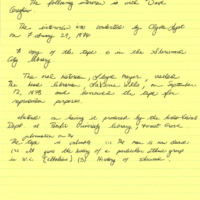 The following interview is with Dave
The interview was conducted by Clyde
on February 29, 1974
A copy of this tape is in the Sherwood
City Library
The oral historian, Lloyd Meyer, visited
the head librarian, on September
12, 1978 and borrowed the tape for
reproduction purposes.
in having it produced by the Audio-Visual
Dept. at Pacific University Library, Forest Grove.
information on the
The tape is valuable (1) The man is now deceased
(2) It gives the history of a particular Ethnic group
in (3) History of Sherwood.